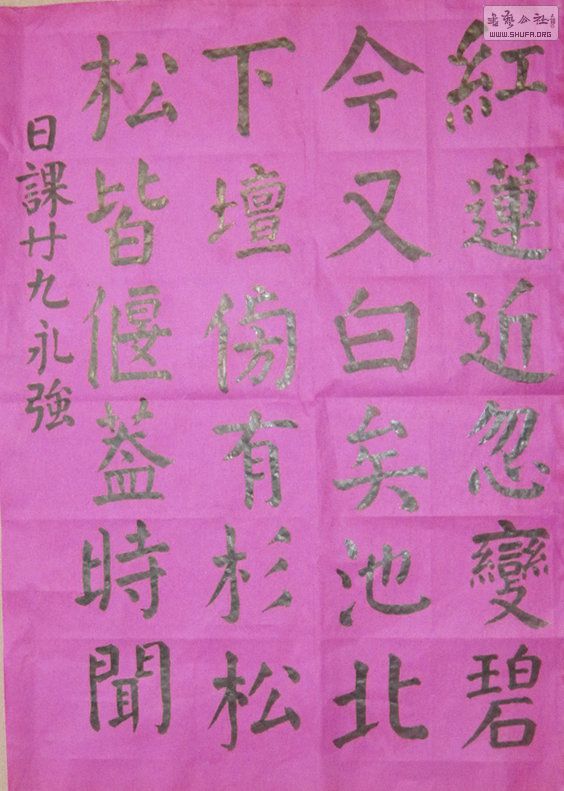 紅蓮近忽變碧
今又白矣池北
下壇傍有杉松
松皆偃蓋時聞
日課廿九永強
WWW.SHUFA.ORG